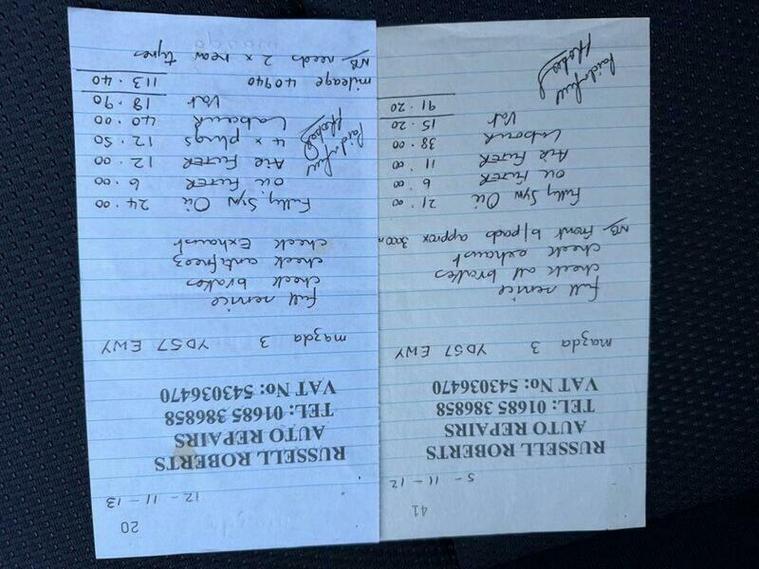 41
5 - 11 - 12
RUSSELL ROBERTS
AUTO REPAIRS
TEL: 01685 386858
VAT No: 543036470
mazda 3 YD57 EWY
full service
check all brakes
check exhaust
NB Front b/pads approx 3000 m
Fully Syn Oil 21.00
Oil FilTER 6.00
Air FilTER 11.00
Labour 38.00
Vat 15.20
91.20
Paid in full
20
12 - 11 - 13
RUSSELL ROBERTS
AUTO REPAIRS
TEL: 01685 386858
VAT No: 543036470
mazda 3 YD57 EWY
full service
check brakes
check antifreez
check Exhaust
Fully Syn Oil 24.00
Oil FilTER 6.00
Air FilTER 12.00
4 x plugs 12.50
Labour 40.00
Vat 18.90
113.40
Paid in full
mileage 40940
NB needs 2 x new tyres